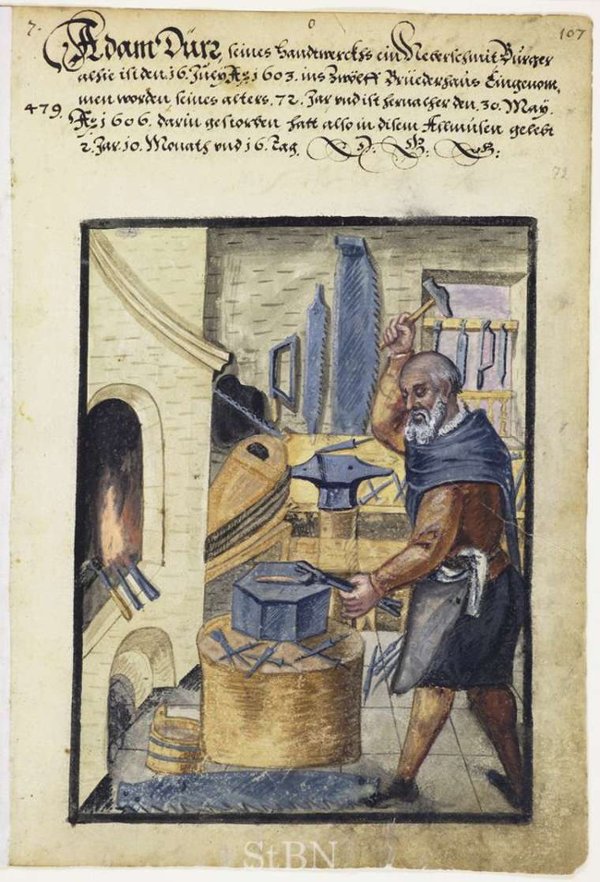 7.
0
107
Adam Dürr, seines Handtwerckhs ein Neberschmit Burger
alhie ist den 16. July Aº 1603. ins Zwölff Brüederhaus Eingenom,
men worden seines alters. 72. Jar vnd ist hernacher den. 30. May.
479. Aº 1606. darin gestorben hatt also in disem Allmusen gelebt
2. Jar. 10. Monath vnd 16. Tag.
72
StBN